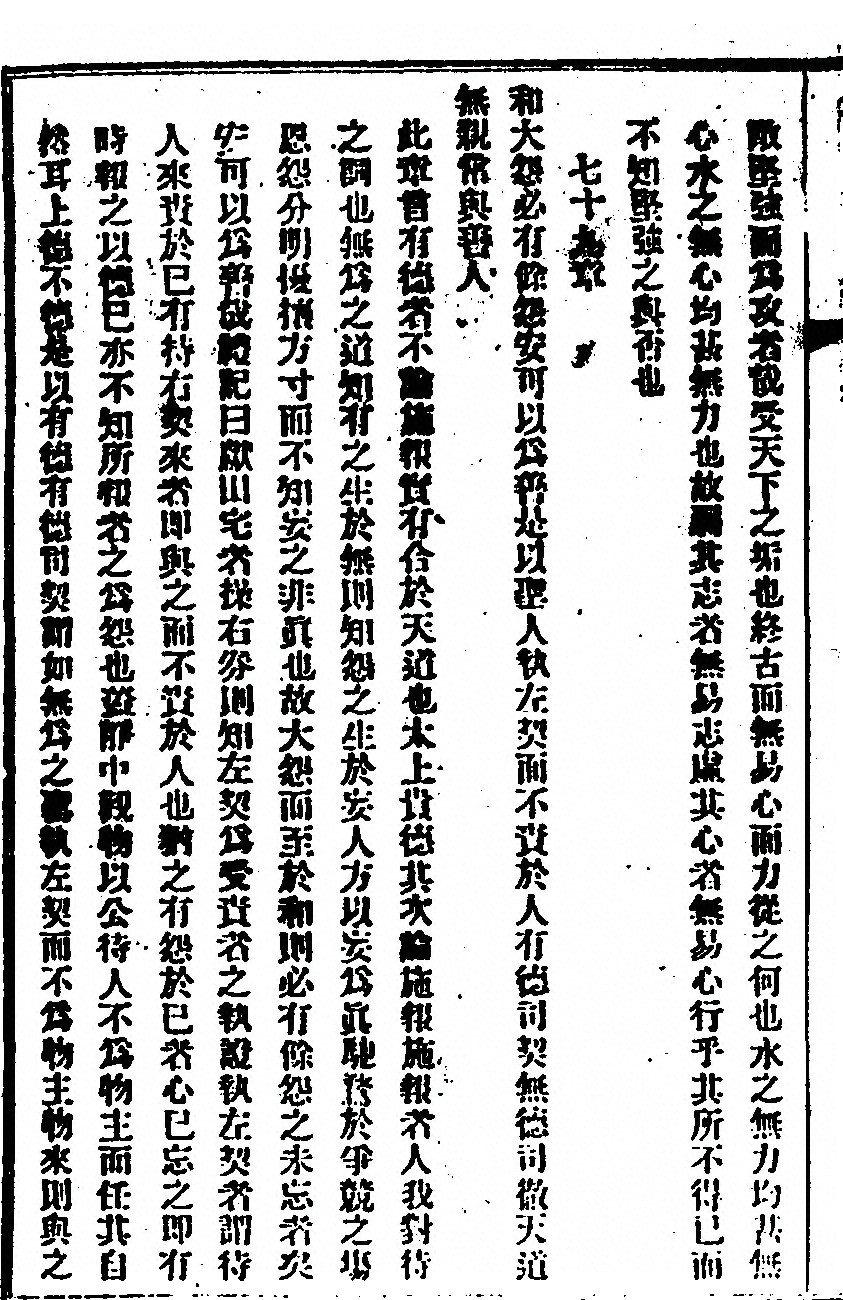 敵堅強而為攻者哉受天下之垢也終古而無易心而力從之何也水之無力均甚無
心水之無心均甚無力也故弱其志者無易志虛其心者無易心行乎其所不得已而
不知堅強之與否也
七十九章
和大怨必有餘怨安可以為善是以聖人執左契而不責於人有德司契無德司徹天道
無親常與善人
此章言有德者不論施報實有合於天道也太上貴德其次論施報施報者人我對待
之詞也無為之道知有之生於無則知怨之生於妄人方以妄為真馳騖於爭競之場
恩怨分明橫積方寸而不知妄之非真也故大怨而至於和則必有餘怨之未忘者矣
安可以為善哉禮記曰獻田宅者操右券則知左契為受責者之執設執左契者謂待
人來責於己有持右契來者即與之而不責於人也猶之有怨於己者心已忘之即有
時報之以德己亦不知所報者之為怨也蓋靜中觀物以公待人不為物主而任其自
然耳上德不德是以有德有德司契謂如無為之君執左契而不為物主物來則與之